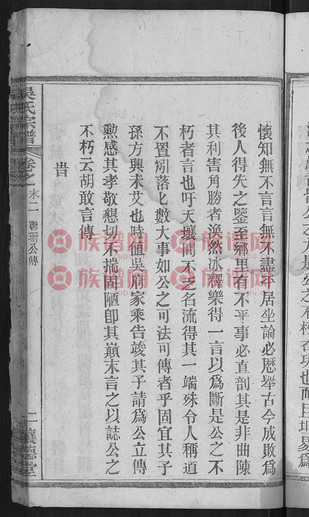 懷知無不言言無不盡平居坐論必歷舉古今成敗爲
後人得失之鑒至鄉里有不平事必直剖其是非曲陳
其利害角勝者渙然冰釋樂得一言以爲斷是公之不
朽者言也吁天壤間不之名流得其一端殊令人稱道
不置矧落七數大事如公之可法可傳者乎固宜其子
孫方興未艾也時值吳府家乘告竣其予請爲公立傳
感其孝敬懇切不揣固陋卽其巔末言之以誌公之
不朽云胡敢言傳
旹
吳氏宗譜
卷之末二
公傳
二
讓德堂
族譜网
族譜网
族譜网
族譜网
族譜网
族譜网